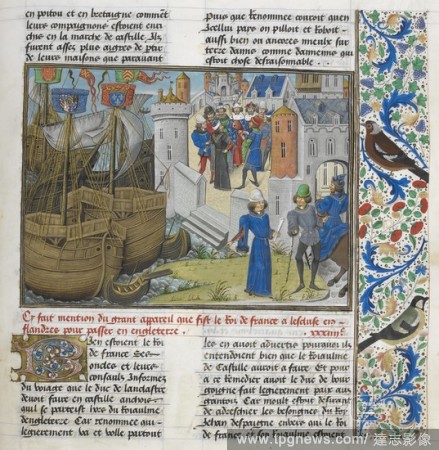 en poitou et en bretaigne comment
leurs compaignons estoient en
en la marche de castille. Ilz
furent assez plus aigres de ptir
de leurs maisons que parauant
puis que renommee couroit que en
Icellui pays on pilloit et robot
aussi bien ou ancores mieulx sur
terre damis comme dannemis qui
estoit chose desraisonnable.
Cy fait mention du grant appareil que fist le Roy de france a lescluse en
flandres pour passer en engleterre. xxxiiii
Bien estoient le roi
de france Ses
oncles et leurs
consaulx Infourmes
du voiage que le duc de lanclastre
deuoit faire en castille anchois
quil se partesist hors du roiaulme
dengleterre. Car renommee qui
legierement va et volle partout
les en auoit aduertis pourquoi ilz
entendoient bien que le Roiaulme
de Castille auroit a faire. Et pour
a ce remedier auoit le duc de bour
goigne fait legierement paix aux
gantois. Car moult estoit desirant
de adreschier les besongnes du Roy
Jehan despaigne enuers qui le Roy
de france et son Roiaulme estoient
www.tpgnews.com / 達志影像